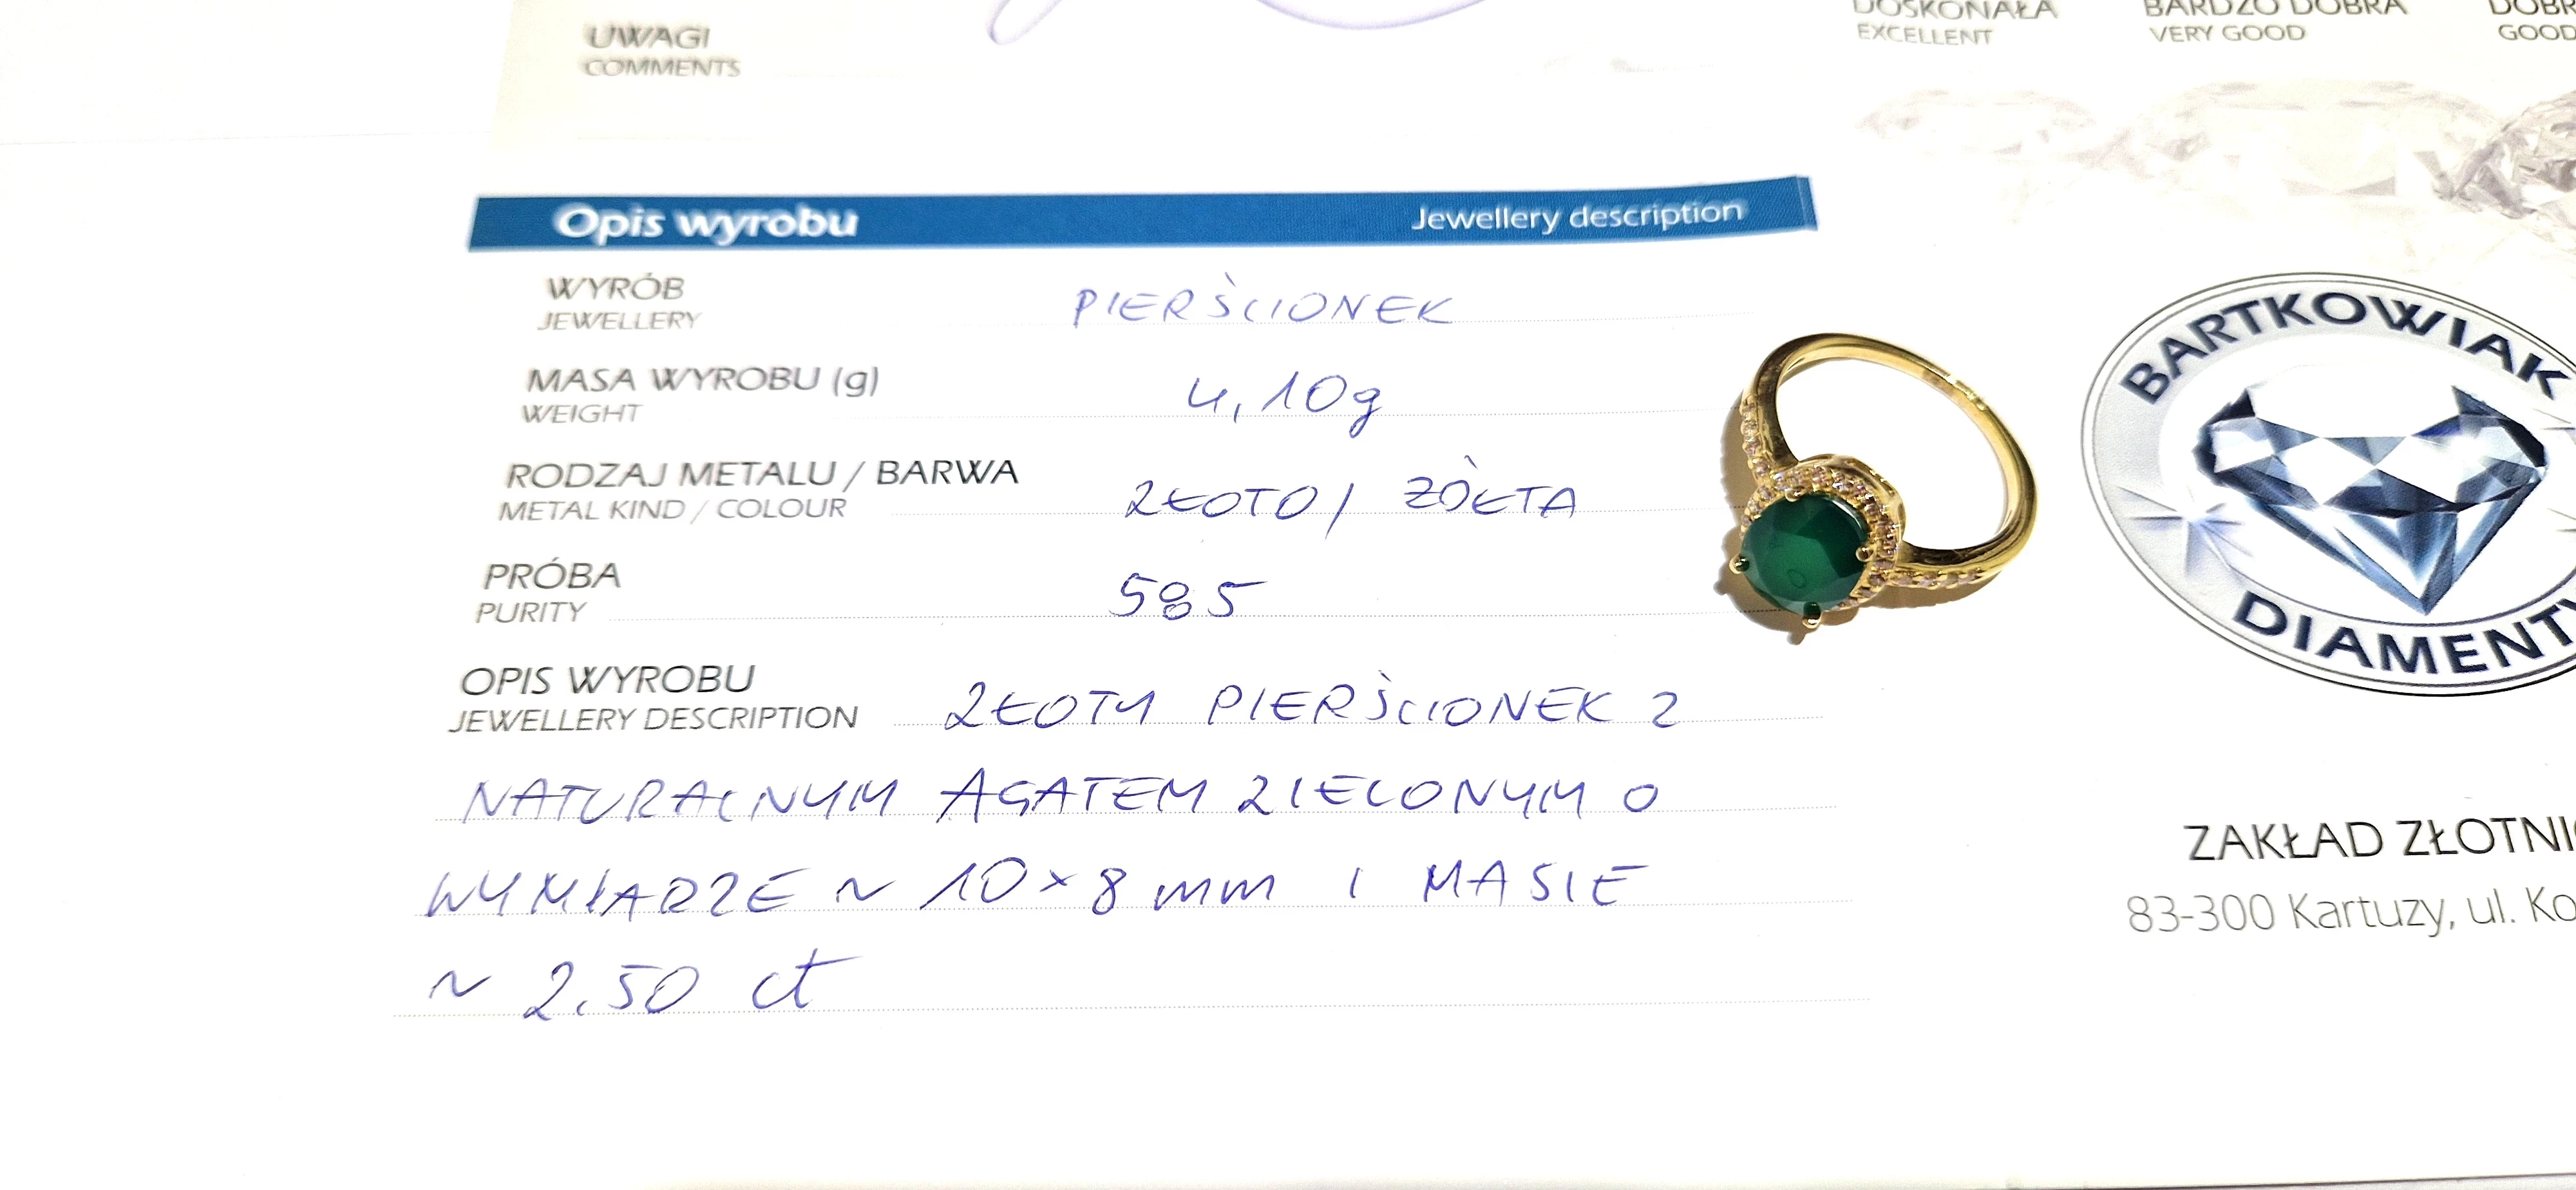 UWAGI
COMMENTS
DOSKONAŁA BARDZO DOBRA DOBR
EXCELLENT VERY GOOD GOOD
Opis wyrobu Jewellery description
WYRÓB PIERŚCIONEK
JEWELLERY
MASA WYROBU (g) 4,10g
WEIGHT
RODZAJ METALU / BARWA ZŁOTO / ŻÓŁTA
METAL KIND / COLOUR
PRÓBA 585
PURITY
OPIS WYROBU ZŁOTY PIERŚCIONEK Z
JEWELLERY DESCRIPTION
NATURALNYM AGATEM ZIELONYM O
WYMIARZE ~ 10×8 mm I MASIE
~ 2.50 ct
BARTKOWIAK
DIAMENTY
ZAKŁAD ZŁOTNI
83-300 Kartuzy, ul. Ko